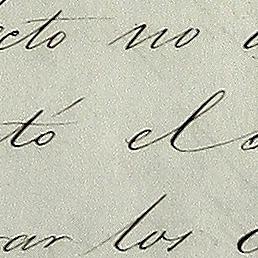 ecto no
tó el
rar los